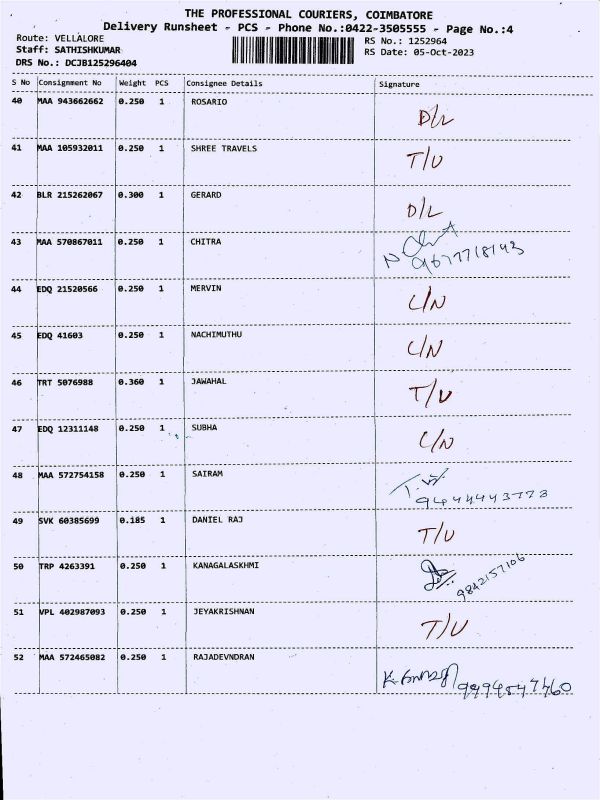 THE PROFESSIONAL COURIERS, COIMBATORE
Delivery Runsheet - PCS - Phone No.:0422-3505555 - Page No.:4
Route: VELLALORE RS No.: 1252964
Staff: SATHISHKUMAR RS Date: 05-Oct-2023
DRS No.: DCJB125296404
S No Consignment No Weight PCS Consignee Details Signature
40 MAA 943662662 0.250 1 ROSARIO D/L
41 MAA 105932011 0.250 1 SHREE TRAVELS T/U
42 BLR 215262067 0.300 1 GERARD D/L
43 MAA 570867011 0.250 1 CHITRA
9677718143
44 EDQ 21520566 0.250 1 MERVIN C/N
45 EDQ 41603 0.250 1 NACHIMUTHU C/N
46 TRT 5076988 0.360 1 JAWAHAL T/U
47 EDQ 12311148 0.250 1 SUBHA C/N
48 MAA 572754158 0.250 1 SAIRAM
9444443773
49 SVK 60385699 0.185 1 DANIEL RAJ T/U
50 TRP 4263391 0.250 1 KANAGALASKHMI
9842157106
51 VPL 402987093 0.250 1 JEYAKRISHNAN T/U
52 MAA 572465082 0.250 1 RAJADEVNDRAN